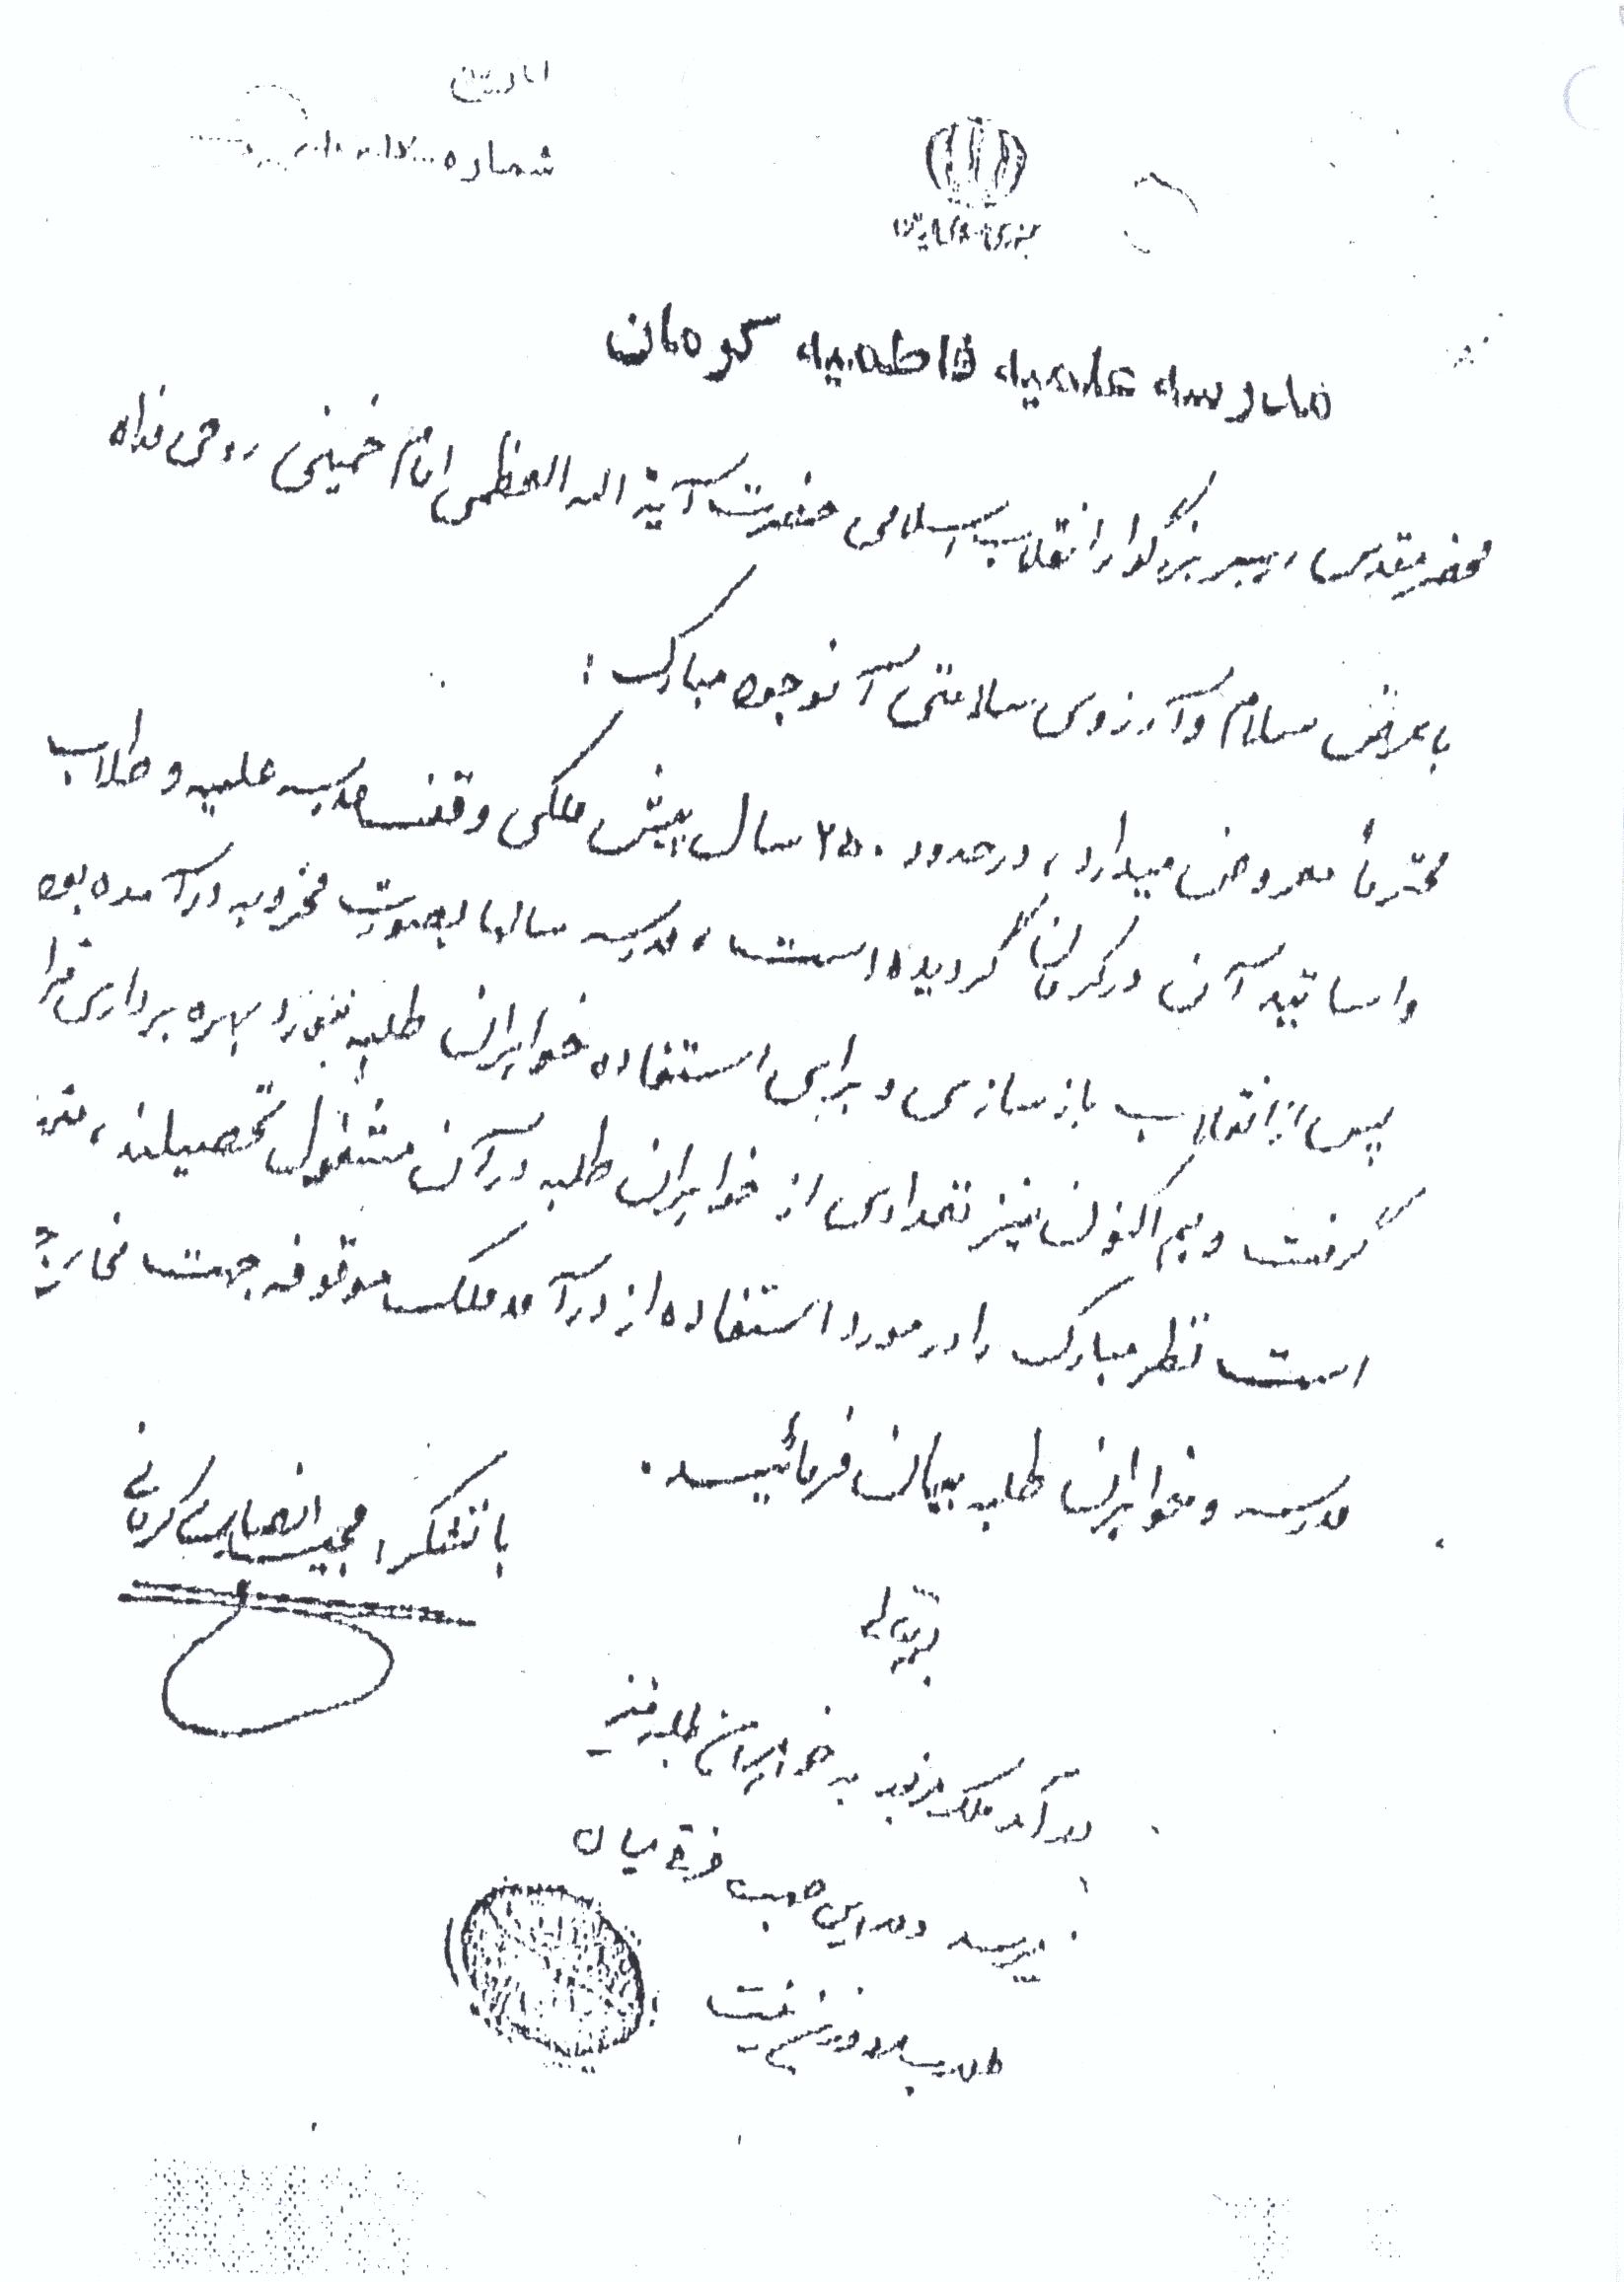 تاریخ
شماره
مدرسه علمیه فاطمیه کرمان
محضر مقدس رهبر بزرگوار انقلاب اسلامی حضرت آیة الله العظمی امام خمینی روحی فداه
با عرض سلام و آرزوی سلامتی آن وجود مبارک :
محترماً معروض میدارد، در حدود ۲۵۰ سال پیش ملکی وقف مدرسه علمیه و طلاب
و اساتید آن در کرمان گردیده است، مدرسه سالها بصورت مخروبه درآمده بود
پس از انقلاب بازسازی و برای استفاده خواهران طلبه بهره برداری قرا
گرفت و هم اکنون نیز تعدادی از خواهران طلبه در آن مشغول تحصیلند،
است نظر مبارک را در مورد استفاده از درآمد ملک موقوفه جهت مخارج
مدرسه و خواهران طلبه بیان فرمائید.
با تشکر، مجید انصاری کرمانی
بسمه تعالی
درآمد ملک مزبور به خواهران طلبه نیز
میرسد و در این جهت فرقی میان
طلاب مرد و زن نیست